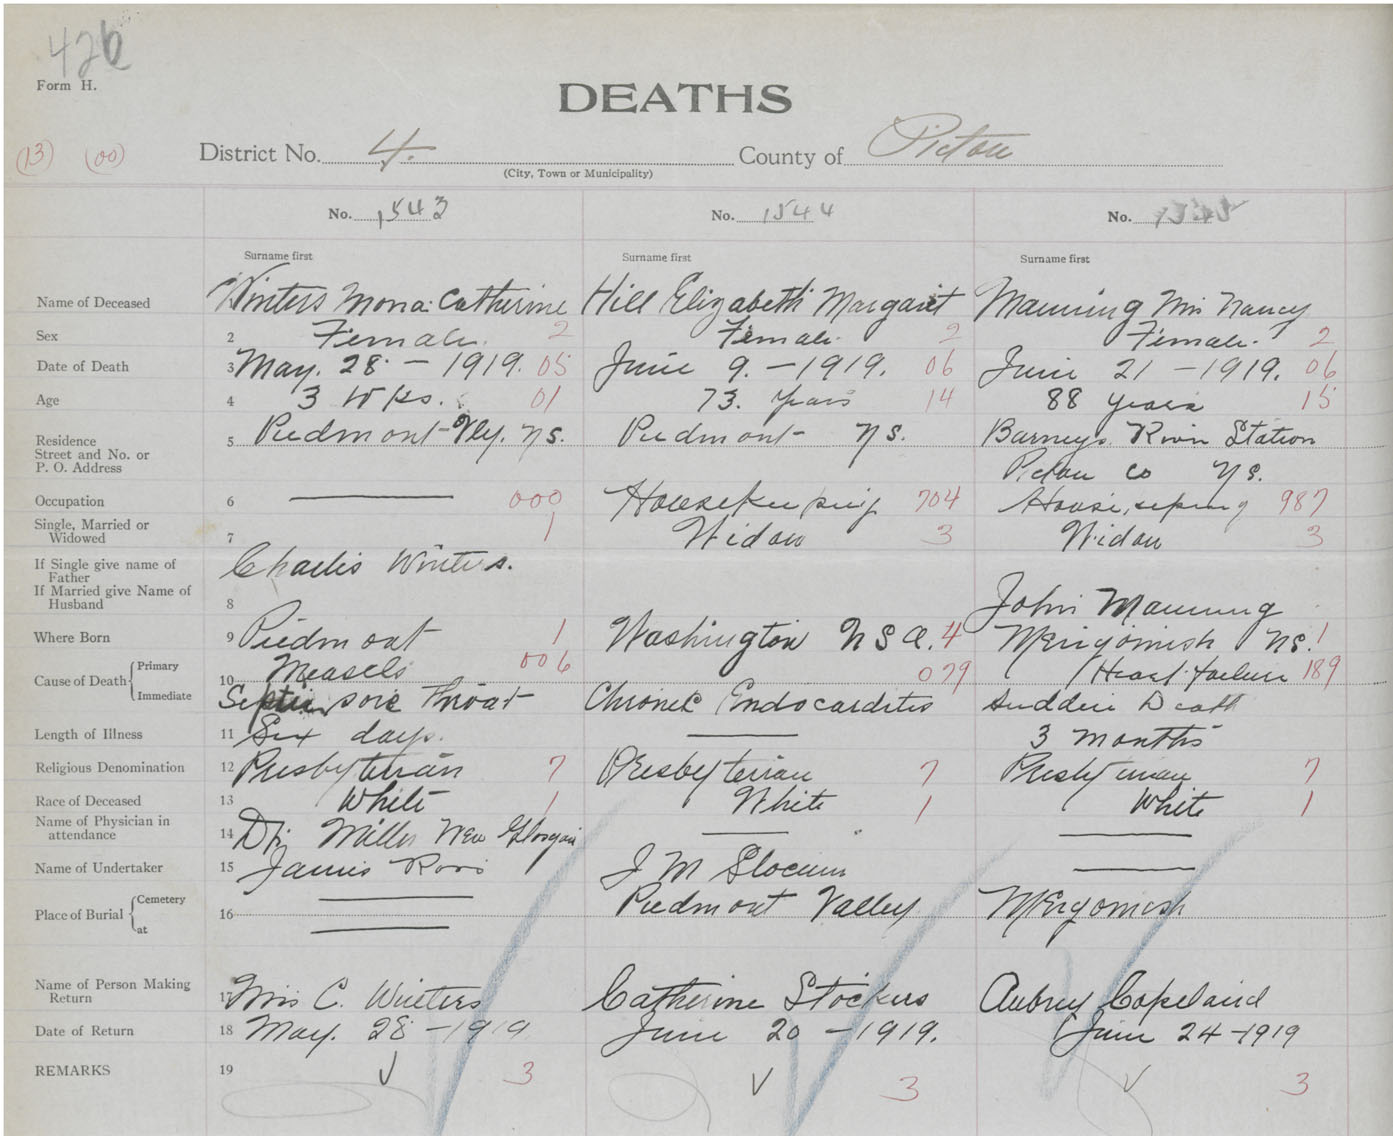 426
Form H.
DEATHS
(13) (00) District No. 4. County of Pictou
(City, Town or Municipality)
No. 1543 No. 1544 No.
Surname first Surname first Surname first
Name of Deceased Winters Mona Catherine Hill Elizabeth Margaret Manning Mrs Nancy
Sex 2 Female. 2 Female. 2 Female. 2
Date of Death 3 May. 28. - 1919. 05 June 9. - 1919. 06 June 21 - 1919. 06
Age 4 3 Wks. 01 73. years 14 88 years 15
Residence
Street and No. or 5 Piedmont Vly. NS. Piedmont NS. Barneys River Station
P. O. Address Pictou Co NS.
Occupation 6 000 Housekeeping 704 987
Single, Married or
Widowed 7 1 Widow 3 Widow 3
If Single give name of
Father Charles Winters.
If Married give Name of
Husband 8 John Manning
Where Born 9 Piedmont 1 Washington U S A. 4 Merigomish NS. 1
Cause of Death Primary 10 Measels 006 079 Heart failure 189
Immediate Septic sore throat Chronic Endocarditis Sudden Death
Length of Illness 11 Six days. 3 months
Religious Denomination 12 Presbyterian 7 Presbyterian 7 Presbyterian 7
Race of Deceased 13 White 1 White 1 White 1
Name of Physician in
attendance 14 Dr. Miller New Glasgow
Name of Undertaker 15 James Ross J M Slocum
Place of Burial Cemetery 16 Piedmont Valley Merigomish
at
Name of Person Making
Return 17 Mrs C. Winters Catherine Stockers Aubrey Copeland
Date of Return 18 May. 28 - 1919 June 20 - 1919. June 24 - 1919
REMARKS 19 3 3 3